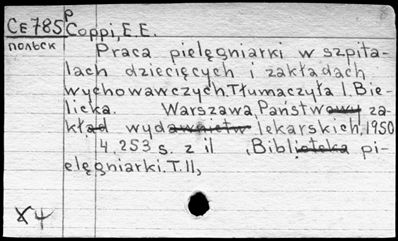 Ce 785 p
польск Coppi, E. E.
Praca pielęgniarki w szpita-
lach dziecięcych i zakładach
wychowawczych. Tłumaczyła I. Bie-
licka. Warszawa, Państwowy za-
kład wydawnictw lekarskich, 1950
4, 253 s. z il. (Biblioteka pi-
elęgniarki. T. II,
X4